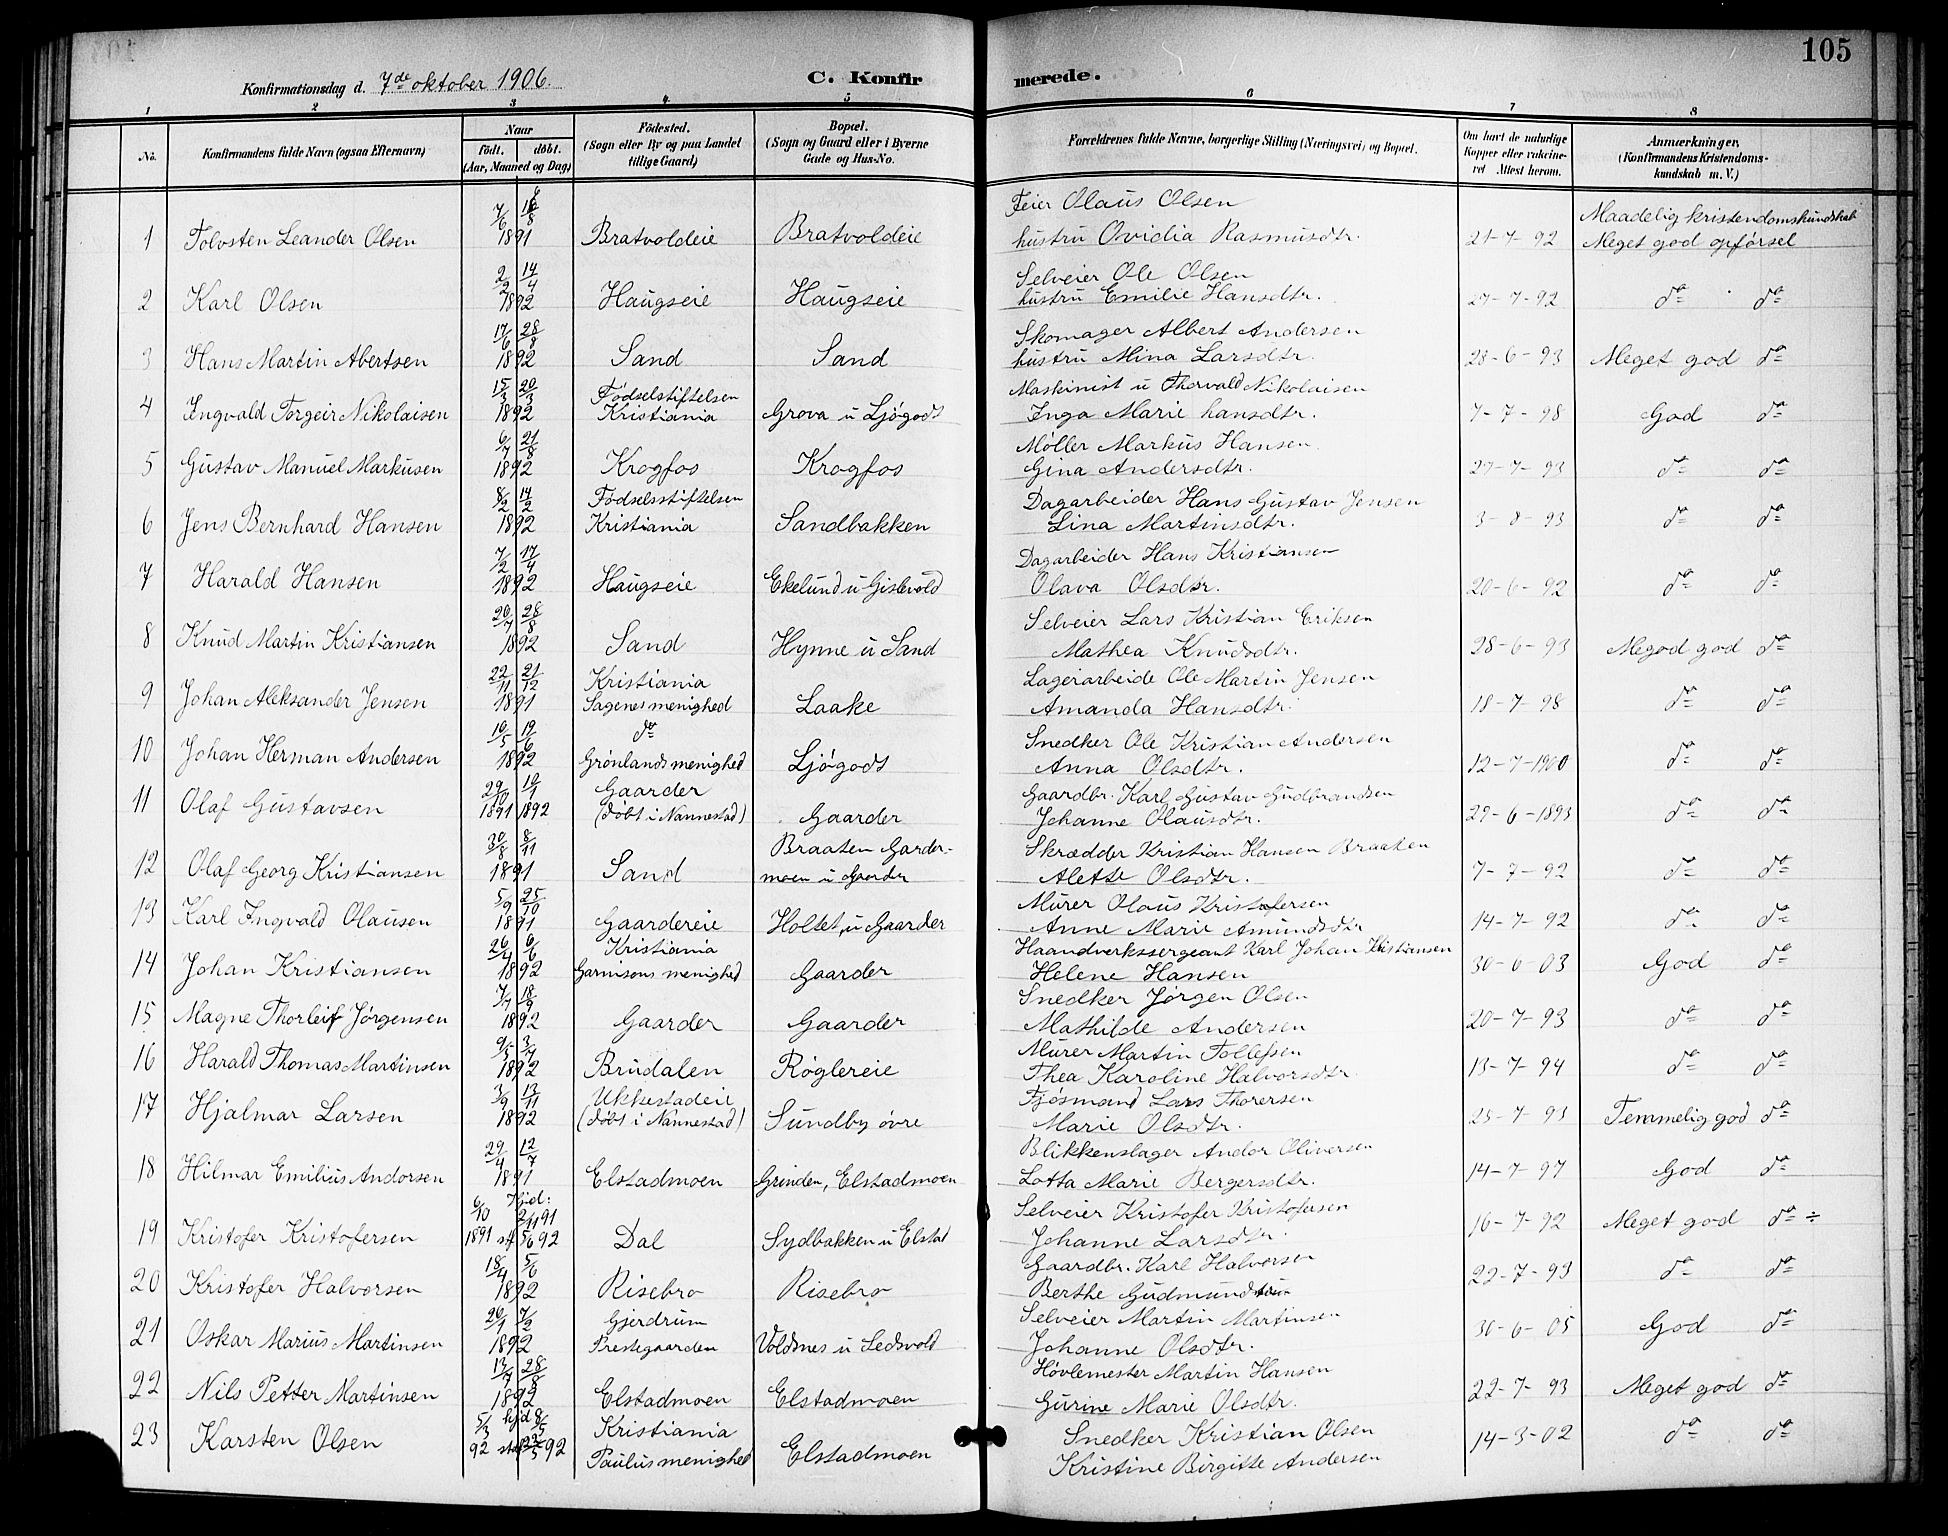 105
Konfirmationsdag d. 7de oktober 1906.
C. Konfirmerede.
1 2 3 4 5 6 7 8
No.
Konfirmandens fulde Navn (ogsaa Efternavn)
Naar
født. døbt.
(Aar, Maaned og Dag)
Fødested.
(Sogn eller By og paa Landet
tillige Gaard)
Bopæl.
(Sogn og Gaard eller i Byerne
Gade og Hus-No.
Forældrenes fulde Navne, borgerlige Stilling (Næringsvei) og Bopæl.
Om havt de naturlige
Kopper eller vakcine-
ret Attest herom.
Anmærkninger,
(Konfirmandens Kristendoms-
kundskab m. V.)
7/6 8 Feier Olaus Olsen Maadelig kristendomskundskab
1 Tolvsten Leander Olsen 1891 Bratvoldeie Bratvoldeie hustru Ovidia Rasmusdtr. 21-7-92 Meget god opførsel
2/2 14/4 Selveier Ole Olsen
2 Karl Olsen 1892 Haugseie Haugseie hustru Emilie Hansdtr. 27-7-92 do do
17/6 28/8 Skomager Albert Andersen
3 Hans Martin Abertsen 1892 Sand Sand hustru Mina Larsdtr. 28-6-93 Meget god do
15/3 20/3 Fødselstiftelsen Maskinist u Thorvald Nikolaisen
4 Ingvald Torgeir Nikolaisen 1892 Kristiania Grova u Ljøgodt Inga Marie hansdtr. 7-7-98 God do
6/7 21/8 Møller Markus Hansen
5 Gustav Manuel Markusen 1892 Krogfos Krogfos Gina Andersdtr. 27-7-93 do do
8/2 14/2 Fødselsstiftelsen Dagarbeider Hans Gustav Jensen
6 Jens Bernhard Hansen 1892 Kristiania Sandbakken Lina Martinsdtr. 3-8-93 do do
7/2 17/4 Dagarbeider Hans Kristiansen
7 Harald Hansen 1892 Haugseie Ekelund u Gislevold Olava Olsdtr. 20-6-92 do do
20/7 28/8 Selveier Lars Kristian Eriksen
8 Knud Martin Kristiansen 1892 Sand Hynne u Sand Mathea Knudsdtr. 28-6-93 Megod god do
22/11 21/12 Kristiania Lagerarbeide Ole Martin Jensen
9 Johan Aleksander Jensen 1891 Sagenes menighed Laake Amanda Hansdtr. 18-7-98 do do
16/5 19/6 do Snedker Ole Kristian Andersen
10 Johan Herman Andersen 1892 Grønlands menighed Ljøgodt Anna Olsdtr. 12-7-1900 do do
29/10 10/1 Gaarder Gaardbr. Karl Gustav Gudbrandsen
11 Olaf Gustavsen 1891 1892 (døbt i Nannestad) Gaarder Johanne Olausdtr. 29-6-1893 do do
30/8 8/11 Braaten Garder- Skrædder Kristian Hansen Braaten
12 Olaf Georg Kristiansen 1891 Sand moen u Gaarder Alette Olsdtr. 7-7-92 do do
5/9 25/10 Murer Olaus Kristofersen
13 Karl Ingvald Olausen 1891 Gaardereie Holtet, u Gaarder Anne Marie Amundsdtr 14-7-92 do do
26/4 6/6 Kristiania Haandverkssergeant Karl Johan Kristiansen
14 Johan Kristiansen 1892 Garnisons menighed Gaarder Helene Hansen 30-6-03 God do
7/7 18/9 Snedker Jørgen Olsen
15 Magne Thorleif Jørgensen 1892 Gaarder Gaarder Mathilde Andersen 20-7-93 do do
9/5 3/7 Murer Martin Tollefsen
16 Harald Thomas Martinsen 1892 Brudalen Røglereie Thea Karoline Halvorsdtr. 13-7-94 do do
3/9 13/11 Ukkestadeie Fjøsmand Lars Thorersen
17 Hjalmar Larsen 1892 (døbt i Nannestad) Sundby øvre Marie Olsdtr. 25-7-93 Temmelig god do
29/4 12/7 Blikkenslager Andor Oliversen
18 Hilmar Emilius Andorsen 1891 Elstadmoen Grinden, Elstadmoen Lotta Marie Bergersdtr. 14-7-97 God do
6/10 Hjd: 2/11 91 Selveier Kristofer Kristofersen
19 Kristofer Kristofersen 1891 stf 5/6 92 Dal Sydbakken u Elstad Johanne Larsdtr. 16-7-92 Meget god do ÷
18/4 5/6 Gaardbr. Karl Halvorsen
20 Kristofer Halvorsen 1892 Risebro Risebro Berthe Gudmundsdtr 22-7-93 do do
26/1 7/2 Gjerdrum Selveier Martin Martinsen
21 Oskar Marius Martinsen 1892 Prestegaarden Voldsnes u Ledsvold Johanne Olsdtr. 30-6-05 God do
13/7 28/8 Høvlemester Martin Hansen
22 Nils Petter Martinsen 1892 Elstadmoen Elstadmoen Gurine Marie Olsdtr. 22-7-93 Meget god do
5/3 hjd 8/5 Kristiania Snedker Kristian Olsen
23 Karsten Olsen 92 92 Paulus menighed Elstadmoen Kristine Birgitte Andersen 14-3-02 do do